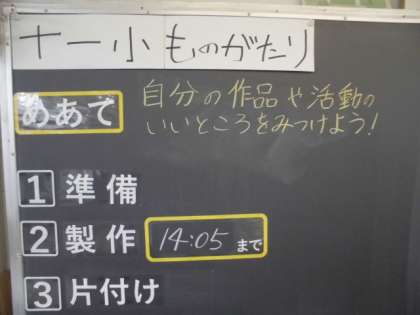 十一小ものがたり
めあて 自分の作品や活動の
いいところをみつけよう!
1 準備
2 製作 14:05 まで
3 片付け